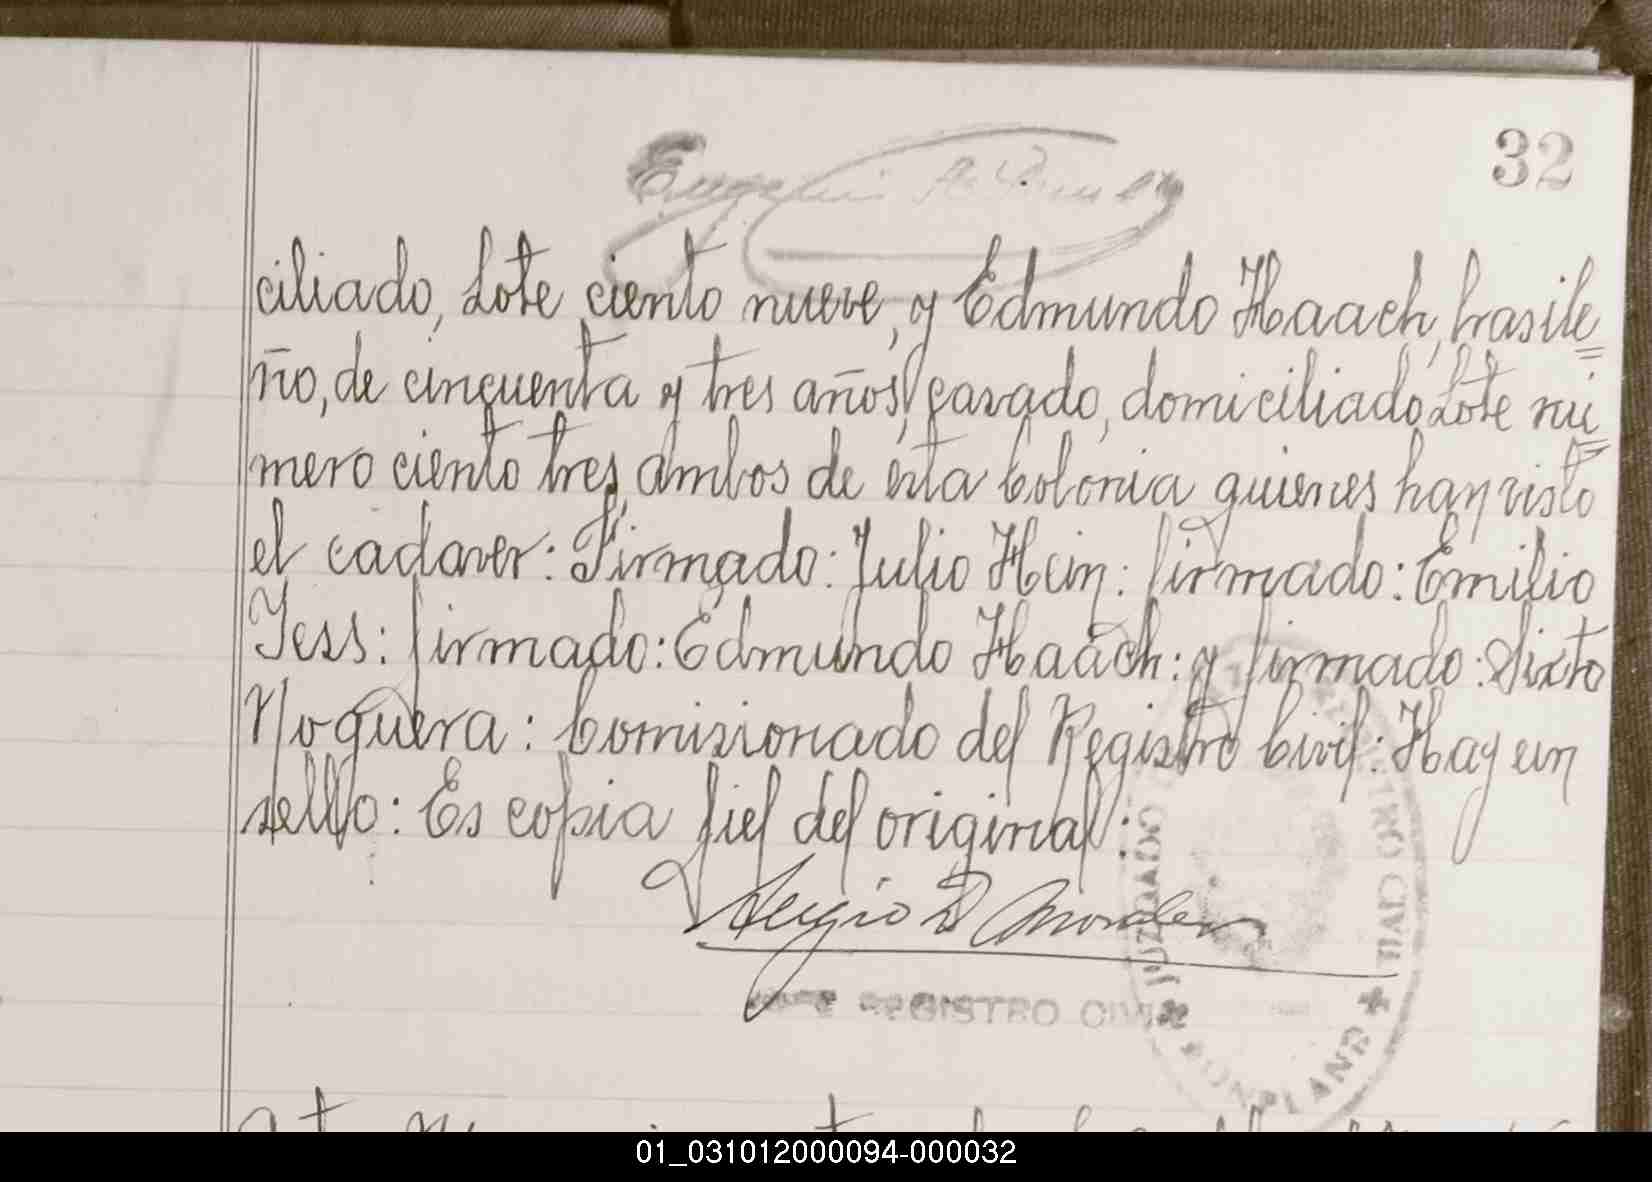 32
ciliado, Lote ciento nueve, y Edmundo Haach, brasile=
ño, de cincuenta y tres años, casado, domiciliado Lote nú=
mero ciento tres, ambos de esta Colonia quienes han visto
el cadaver: Firmado: Julio Hein: firmado: Emilio
Jess: firmado: Edmundo Haach: y firmado: Sixto
Noguera: Comisionado del Registro Civil: Hay un
sello: Es copia fiel del original:
Sergio D
REGISTRO CIVIL
JUZGADO
BONPLAND
01_031012000094-000032